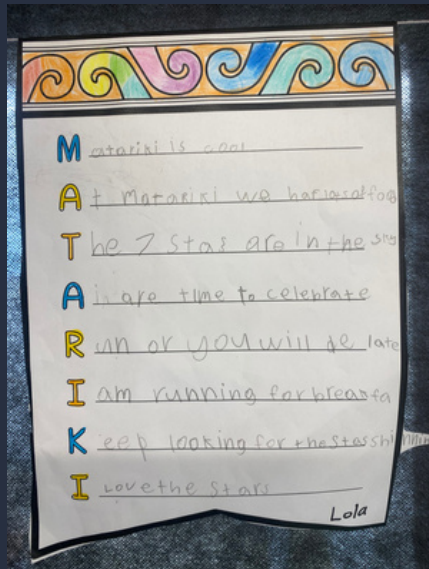 Matariki is cool
At Matariki we
The 7 stas are in the sky
A are time to celebrate
Run or you will be late
I am running for breakfa
Keep looking for the stas shi
I Love the stars
Lola